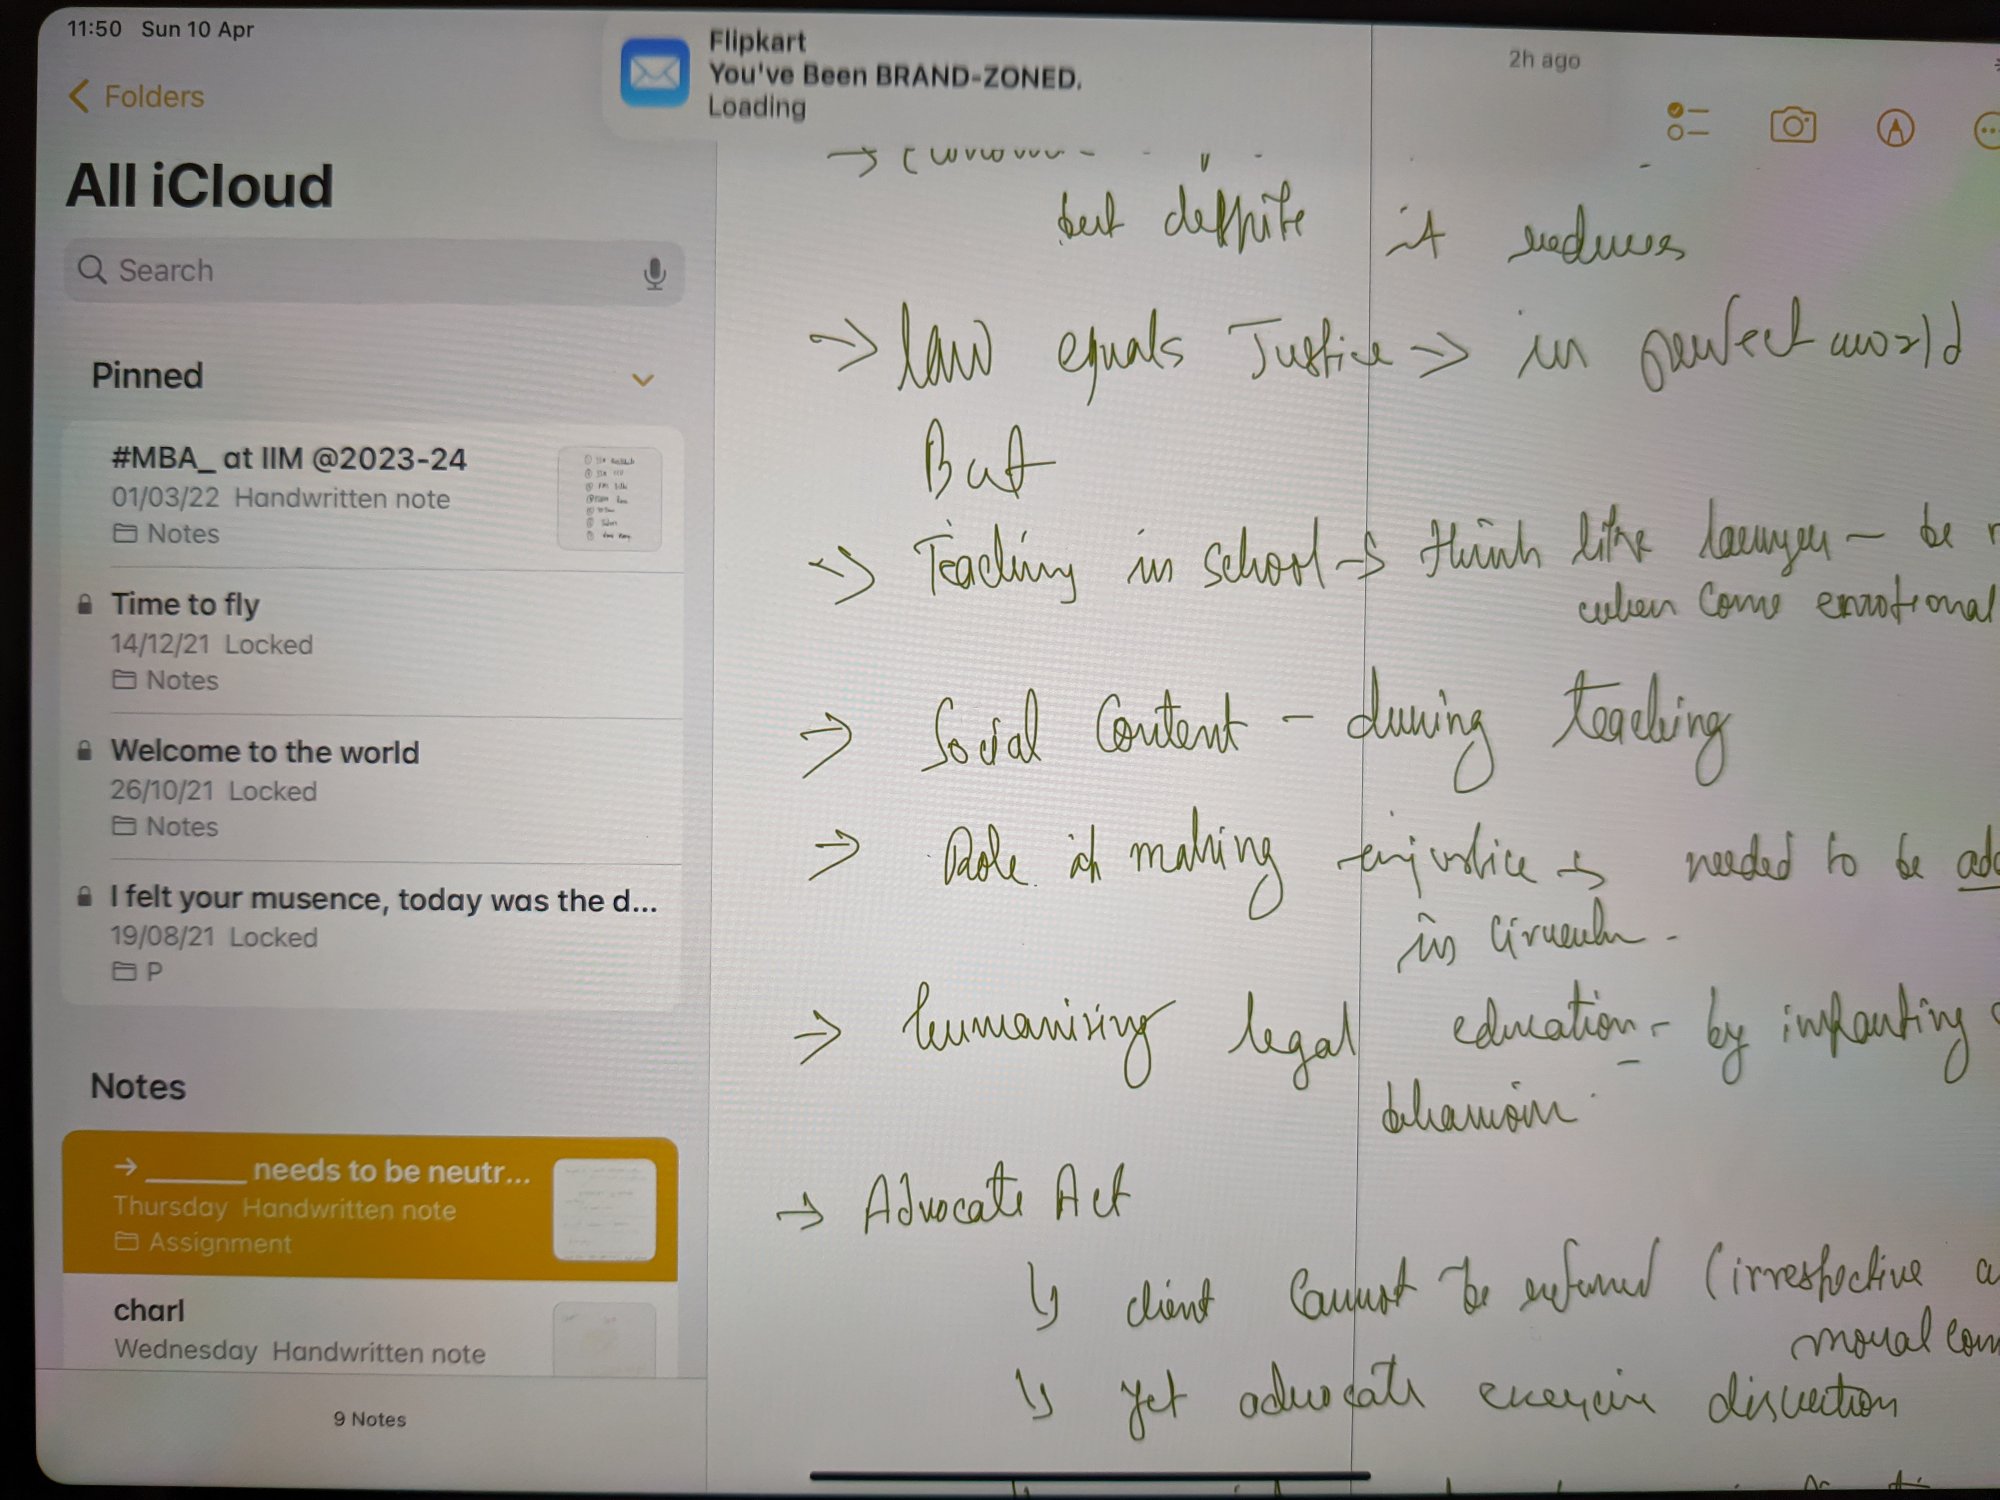 11:50 Sun 10 Apr
Flipkart
You've Been BRAND-ZONED.
Loading
2h ago
Folders
All iCloud
Search
Pinned
#MBA_ at IIM @2023-24
01/03/22 Handwritten note
Notes
Time to fly
14/12/21 Locked
Notes
Welcome to the world
26/10/21 Locked
Notes
I felt your musence, today was the d...
19/08/21 Locked
P
Notes
→ ______ needs to be neutr...
Thursday Handwritten note
Assignment
charl
Wednesday Handwritten note
9 Notes
but despite it reduces
→ law equals Justice → in perfect world
But
→ Teaching in school → think like lawyer - be
when come emotional
→ Social Content - during teaching
→ Role in making injustice → needed to be
in
→ humanising legal education - by imparting
behaviour
→ Advocate Act
↳ client cannot be refused (irrespective
moral
↳ yet advocate exercise discretion